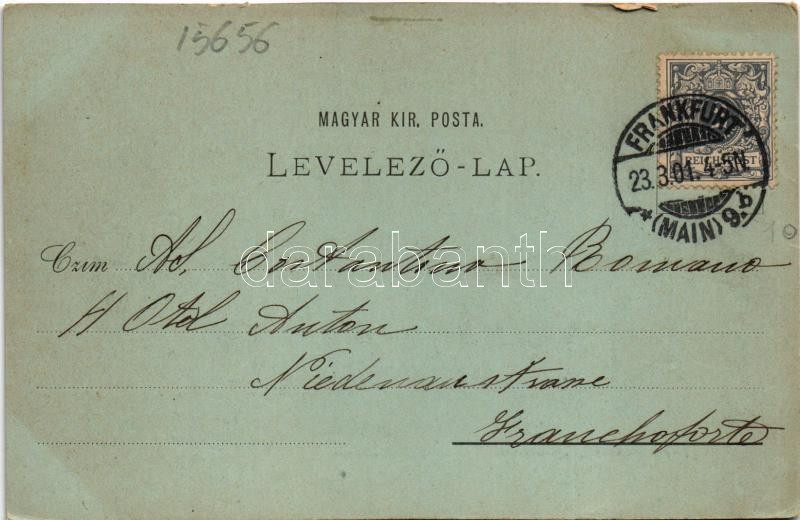 15656
MAGYAR KIR. POSTA.
LEVELEZŐ-LAP.
REICHSPOST
FRANKFURT
23.3.01. 4-5N.
*(MAIN) 9.b
10
Czim Al, Costantino Romano
H Otel Anton
Niedenaustrane
Franchoforte
darabanth